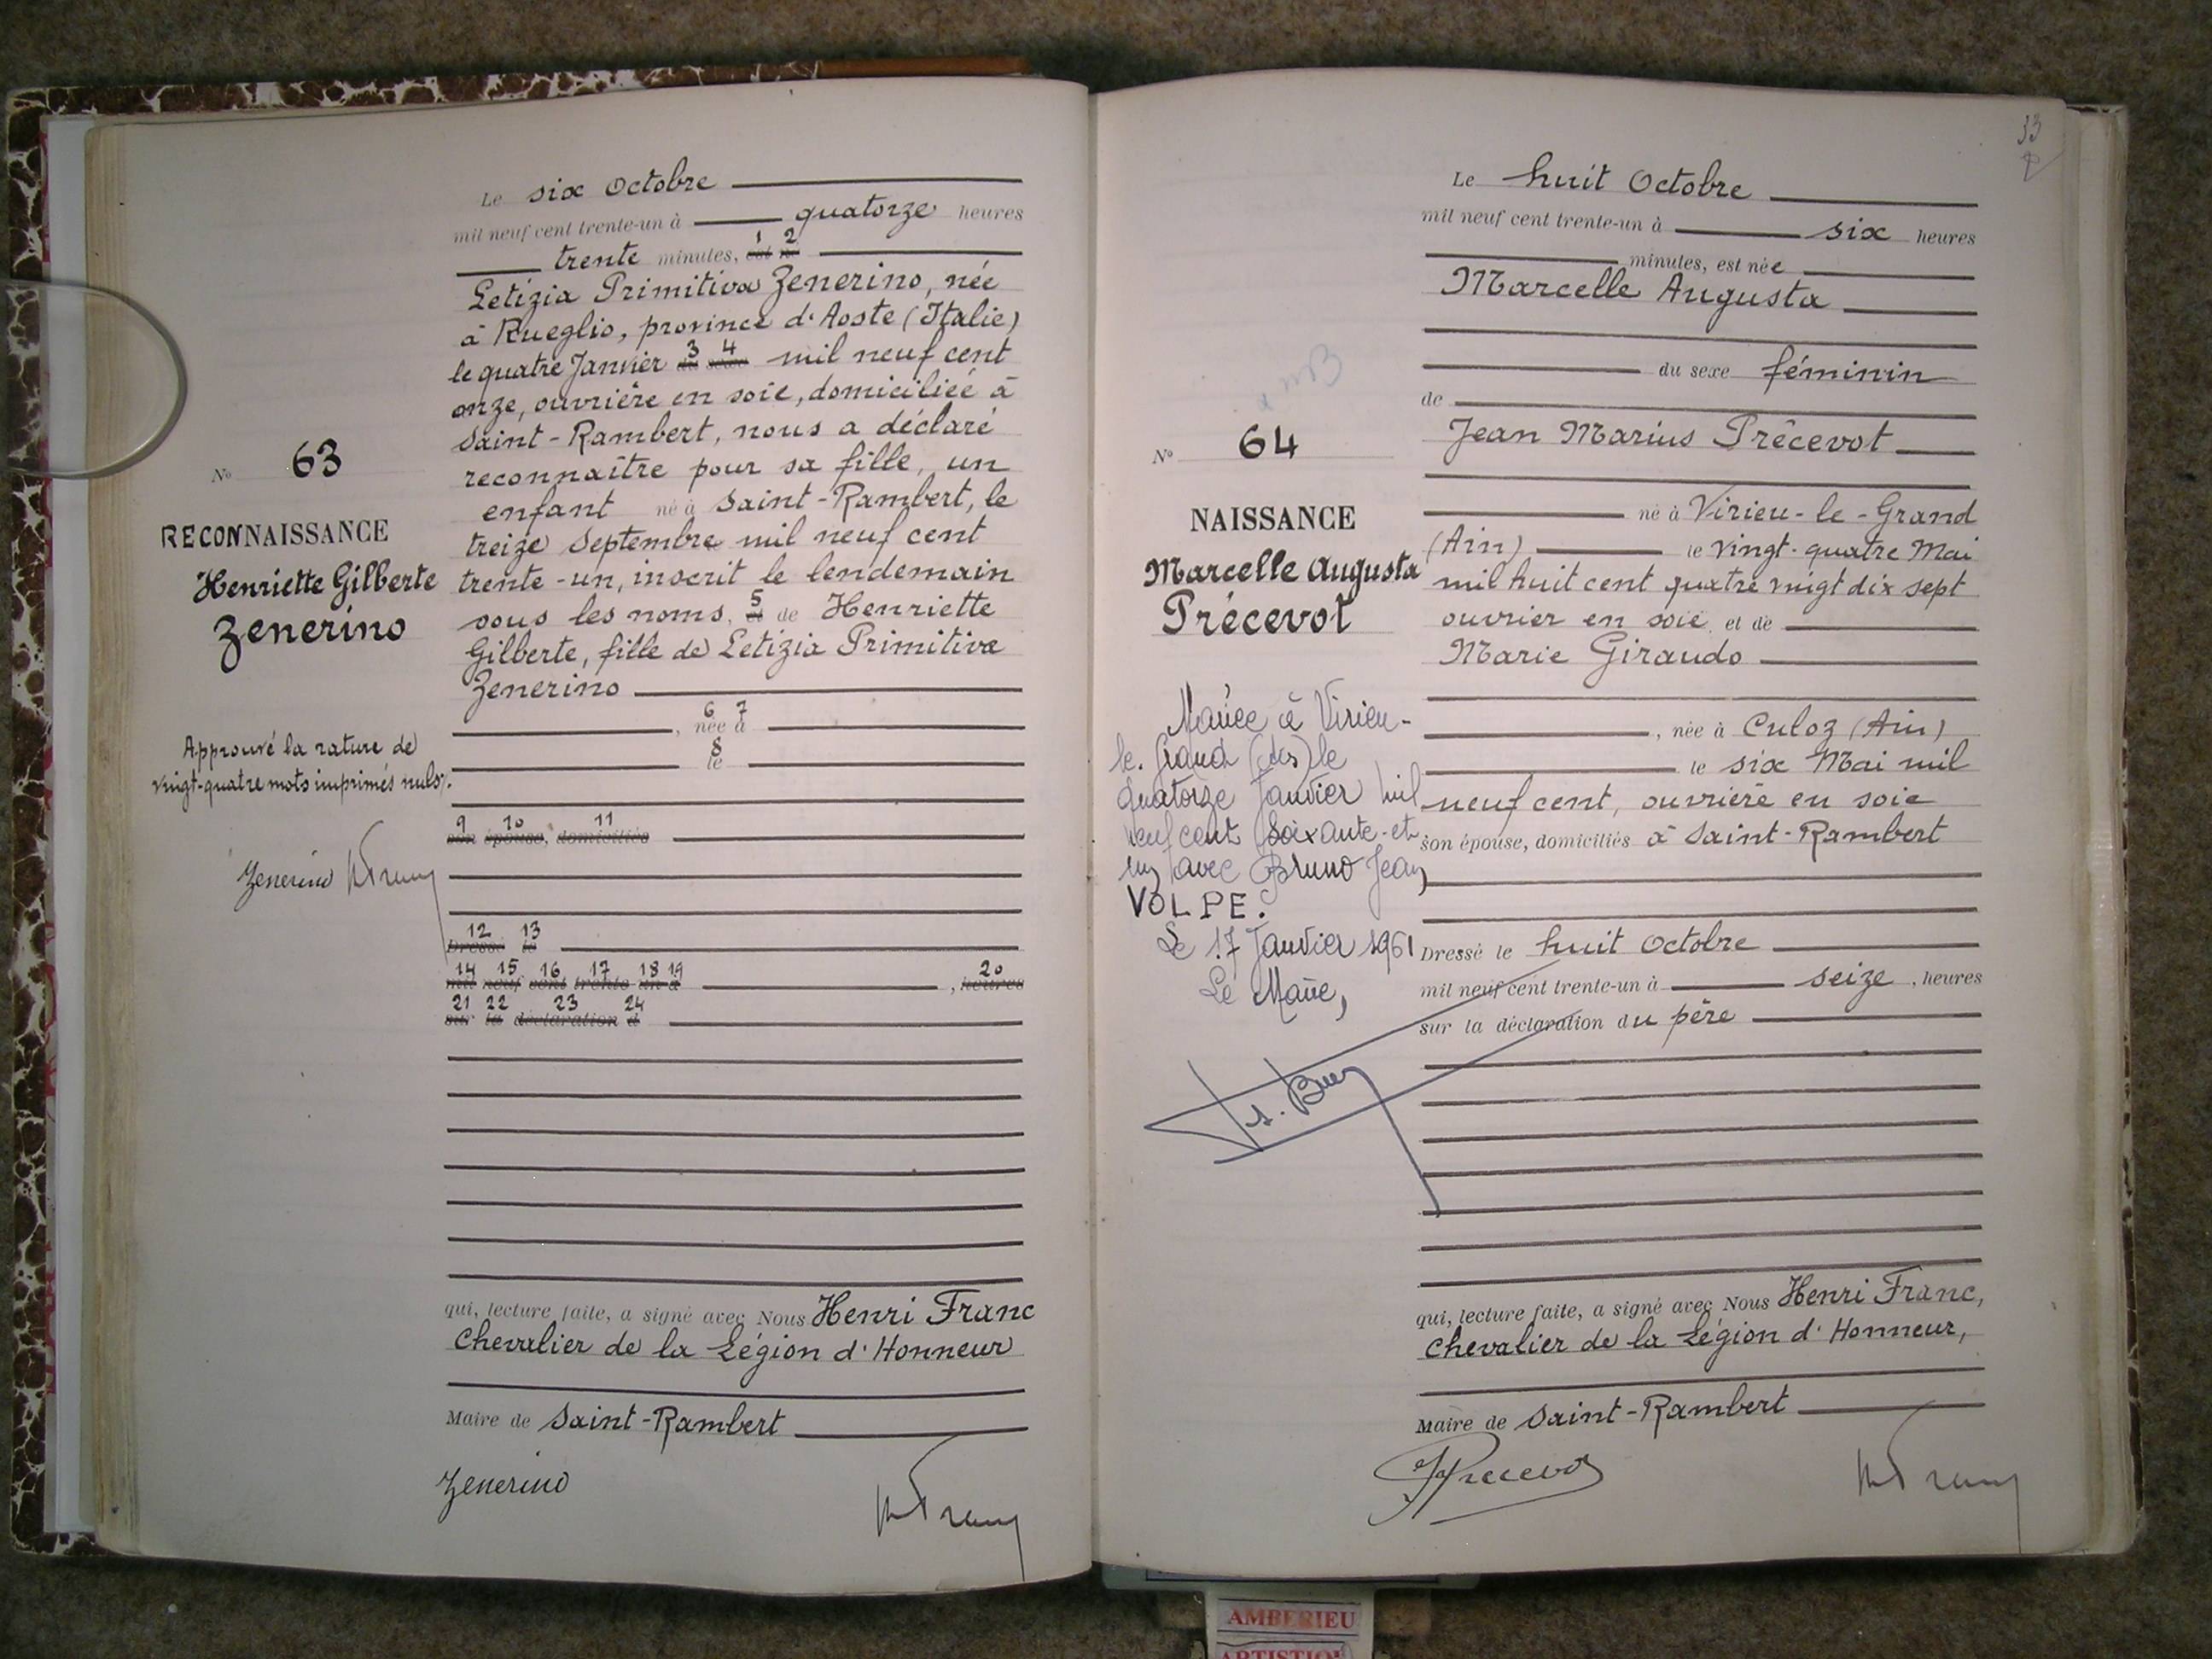 N° 63
RECONNAISSANCE
Henriette Gilberte
Zenerino
Approuvé la rature de
vingt-quatre mots imprimés nuls.
Zenerino
Le six Octobre
mil neuf cent trente-un à quatorze heures
1 2
trente minutes, est né
Letizia Primitiva Zenerino, née
à Rueglio, province d'Aoste (Italie)
3 4
le quatre Janvier mil neuf cent
onze, ouvrière en soie, domiciliée à
Saint-Rambert, nous a déclaré
reconnaître pour sa fille, un
enfant né à Saint-Rambert, le
treize Septembre mil neuf cent
trente-un, inscrit le lendemain
5
sous les noms, et de Henriette
Gilberte, fille de Letizia Primitiva
Zenerino
6 7
, née à
8
le
9 10 11
son épouse, domiciliés
12 13
Dressé le
14 15 16 17 18 19 20
mil neuf cent trente un à , heures
21 22 23 24
sur la déclaration d
qui, lecture faite, a signé avec Nous Henri Franc
Chevalier de la Légion d'Honneur
Maire de Saint-Rambert
Zenerino
33
N° 64
NAISSANCE
Marcelle Augusta
Précevot
Mariée à Virieu-
le-Grand (Ain) le
quatorze Janvier mil
neuf cent soixante-et-
un avec Bruno Jean
VOLPE.
Le 17 Janvier 1961
Le Maire,
Le huit Octobre
mil neuf cent trente-un à six heures
minutes, est née
Marcelle Augusta
du sexe féminin
de
Jean Marius Précevot
né à Virieu-le-Grand
(Ain) le vingt-quatre Mai
mil huit cent quatre vingt dix sept
ouvrier en soie et de
Marie Giraudo
, née à Culoz (Ain)
le six Mai mil
neuf cent, ouvrière en soie
son épouse, domiciliés à Saint-Rambert
Dressé le huit Octobre
mil neuf cent trente-un à seize , heures
sur la déclaration du père
qui, lecture faite, a signé avec Nous Henri Franc,
Chevalier de la Légion d'Honneur,
Maire de Saint-Rambert
AMBERIEU